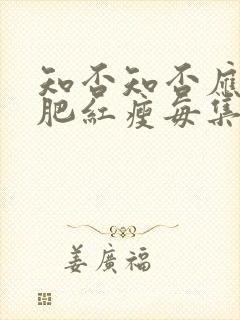 知否知否應
肥紅瘦每集
姜廣福